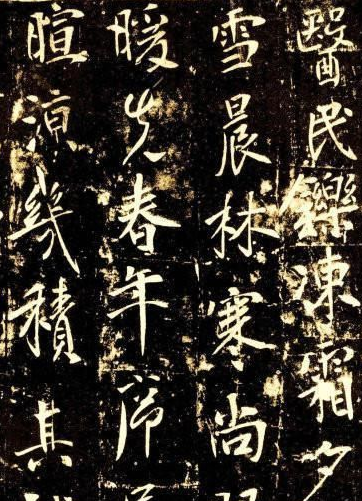 醫民鑠凍霜夕
雪晨林寒尚
暖先春年
暄涼幾積其